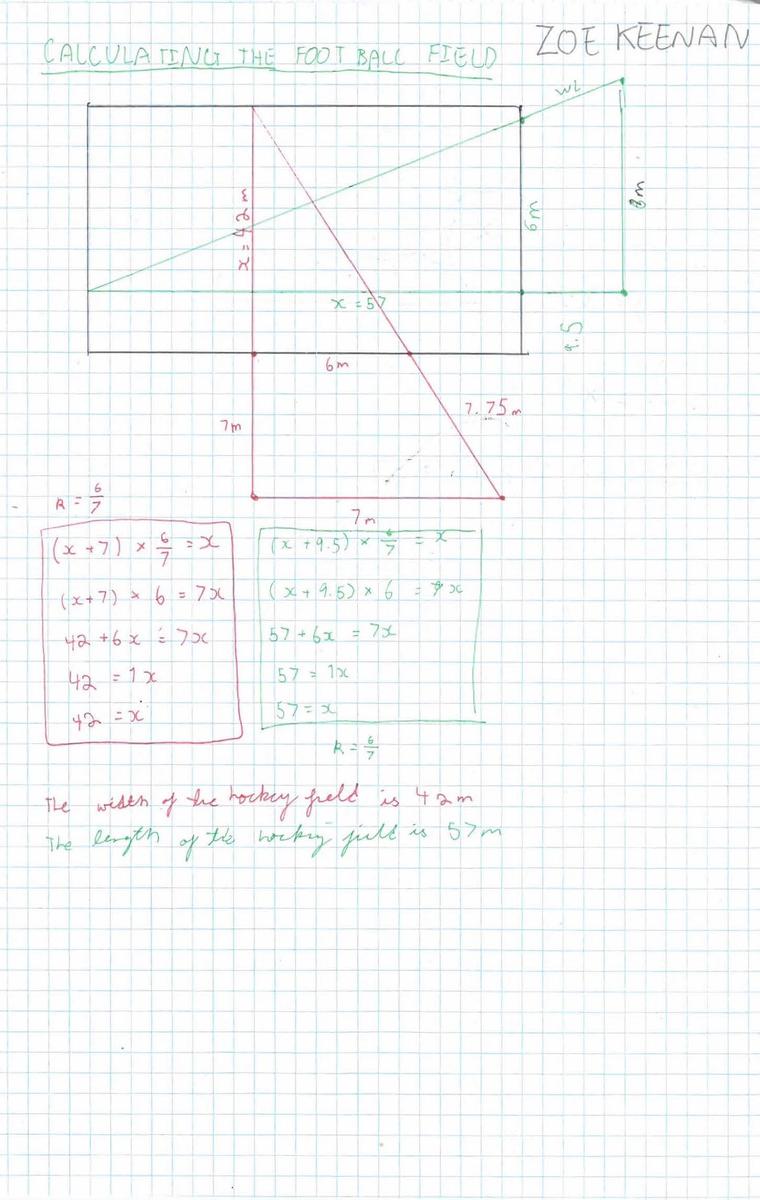 ZOE KEENAN
CALCULATING THE FOOTBALL FIELD
WL
8m
6m
x = 42 m
x = 57
9.5
6m
7m
7.75m
7m
R = 6/7
(x + 7) × 6/7 = x
(x+7) × 6 = 7x
42 + 6x = 7x
42 = 1x
42 = x
(x + 9.5) × 6/7 = x
(x + 9.5) × 6 = 7x
57 + 6x = 7x
57 = 1x
57 = x
R = 6/7
The width of the hockey field is 42m
The length of the hockey field is 57m